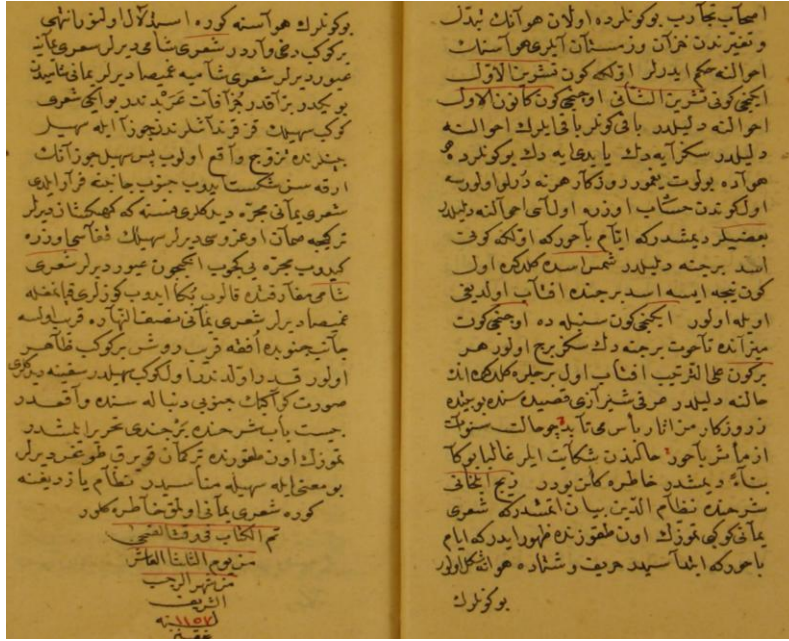 اصحاب تجارب بوكونلرده اولان هوانك تبدل
و تغيرندن خزان و زمستان آيلرى هواسنك
احوالنه حكم ايدرلر اولكى كون تشرين الاول
ايكنجى كونى تشرين الثانى اوچنجى كون كانون الاول
احوالنه دليلدر باقى كونلر باقى ايلرك احوالنه
دليلدر سكز آيه دك يا يدى ايه دك بوكونلرده
هواده بولوت يغمور روزكار هر نه درلو اولورسه
اول كوندن حساب اوزره اول آى احوالنه دليلدر
بعضيلر ديمشدركه ايام باحوركه اولكى كونى
اسد برجنه دليلدر شمس اسده كلدكده اول
كون نيجه ايسه اسد برجنده افتاب اولديغى
اويله اولور ايكنجى كون سنبله ده اوچنجى كون
ميزانده تا حوت برجنه دك سكز برج اولور هر
بر كون على الترتيب افتاب اول برجلره كلدكده انك
حالنه دليلدر عرفى شيرازى قصيده سنده بو بيتده
ز روزكار من اثار ياس مى تابد چو حالت سنوات
از مآثر باحور حالندن شكايت ايلر غالبا بوكا
بناء ديمشدر خاطره كلن بودر زيج ايلخانى
شرحنده نظام الدين بيان ايتمشدركه شعرى
يمانى كوكبى تموزك اون طقوزنده ظهور ايدركه ايام
باحوركه ابتداسيدر خريف و شتاده هوا نه شكل اولور
بوكونلرك
بوكونلرك هواسنه كوره استدلال اولنور انتهى
بر كوكب دخى واردر شعرى شامى ديرلر شعرى يمانيه
عبور ديرلر شعرى شاميه غميصا ديرلر يمانى
كوكب سهيلك قز قرنداشلرندر جوزا ايله سهيل
بينلرنده تزوج واقع اولوب پس سهيل جوزانك
ارقه سن شكست ايدوب جنوب جانبنه فرار ايلدى
شعرى يمانى مجره ديدكلرى نسنه كه كهكشان ديرلر
تركيجه صمان اوغروسى ديرلر سهيلك قفاسى اوزره
كيدوب مجره يى كچوب انكچون عبور ديرلر شعرى
شامى مفارقتده قالوب بكا ايدوب كوزلرى قپانمغله
غميصا ديرلر شعرى يمانى نصف النهاره قريب اولسه
جانب جنوبده افقه قريب روشن بر كوكب ظاهر
اولور اول كوكب سهيلدر سفينه ديدكلرى
صورت كواكبك جنوبى دنباله سنده واقعدر
بيست باب شرحنده برجندى تحرير ايتمشدر
تموزك اون طقوزنده تركمان قويرق طوغدى ديرلر
بو معنى ايله سهيله مناسبدر نظام يازديغنه
كوره شعرى يمانى اولمق خاطره كلور
تم الكتاب فى وقت الضحى
من يوم الثلثا العاشر
من شهر الرجب
الشريف
سنه ١١٥٧